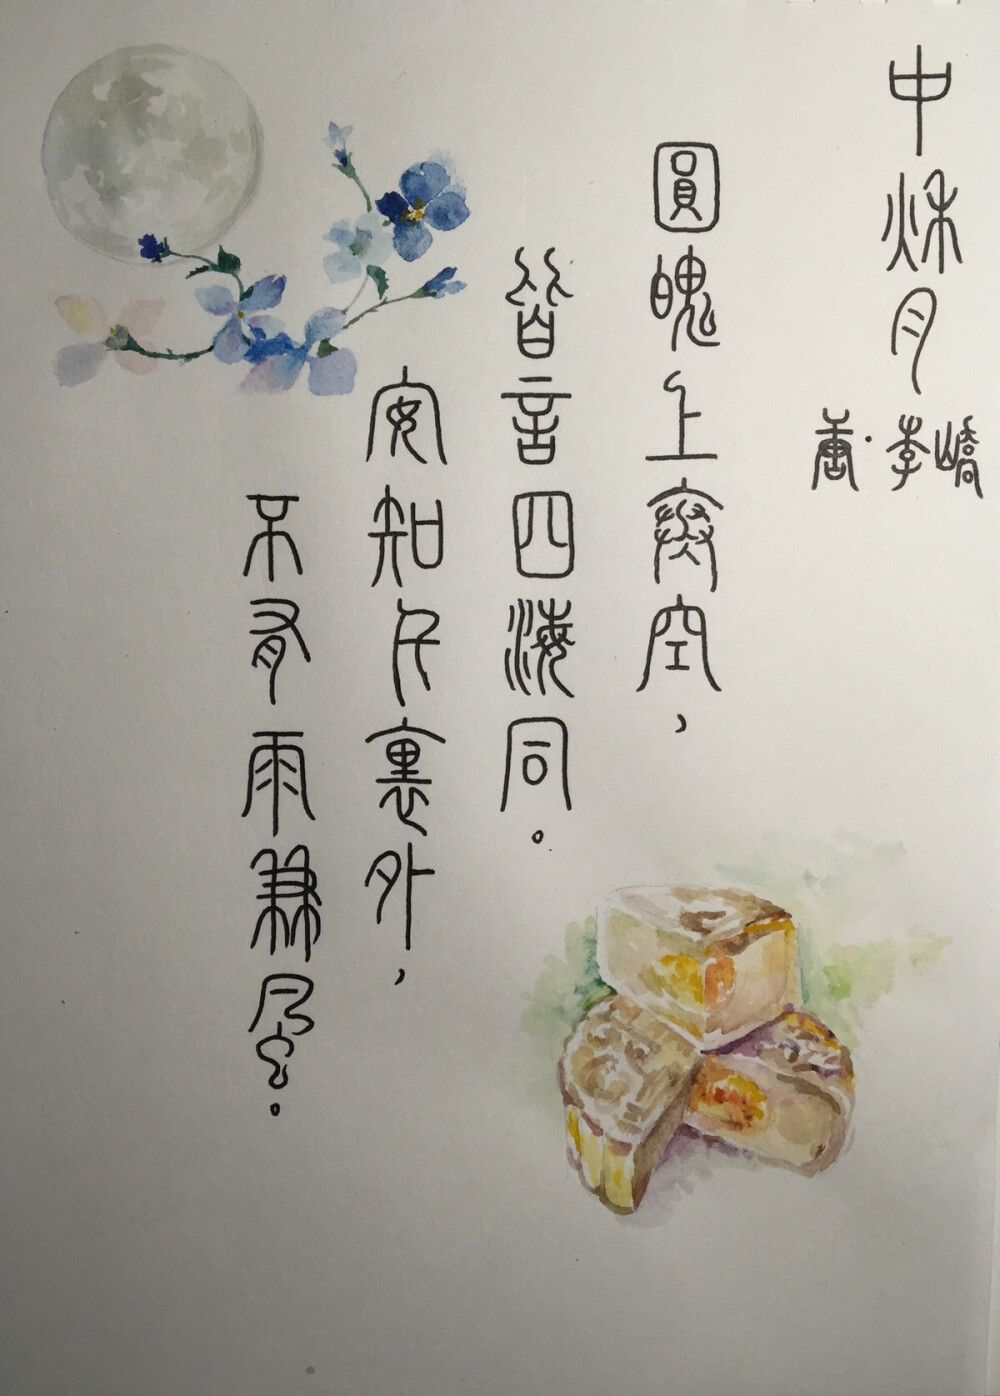 中秋月
唐·李嶠
圓魄上寒空,
皆言四海同。
安知千裏外,
不有雨兼風?